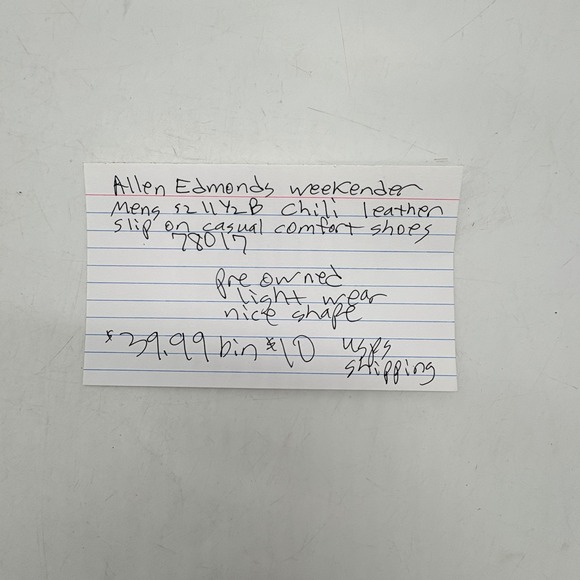 Allen Edmonds weekender
Mens sz 11 1/2 B Chili leather
slip on casual comfort shoes
78017
pre owned
light wear
nice shape
$39.99 bin $10 usps
shipping